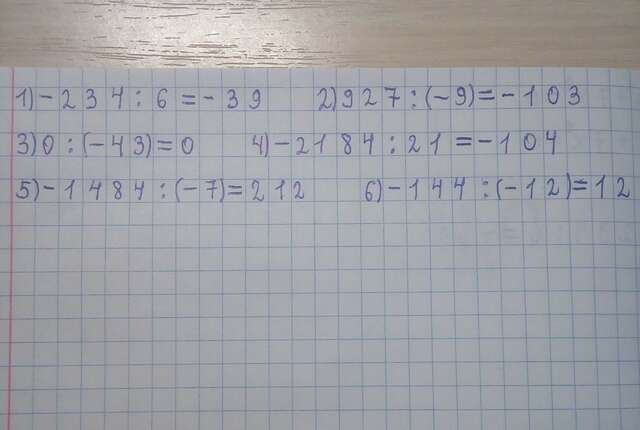 1) -234 : 6 = -39 2) 927 : (-9) = -103
3) 0 : (-43) = 0 4) -2184 : 21 = -104
5) -1484 : (-7) = 212 6) -144 : (-12) = 12